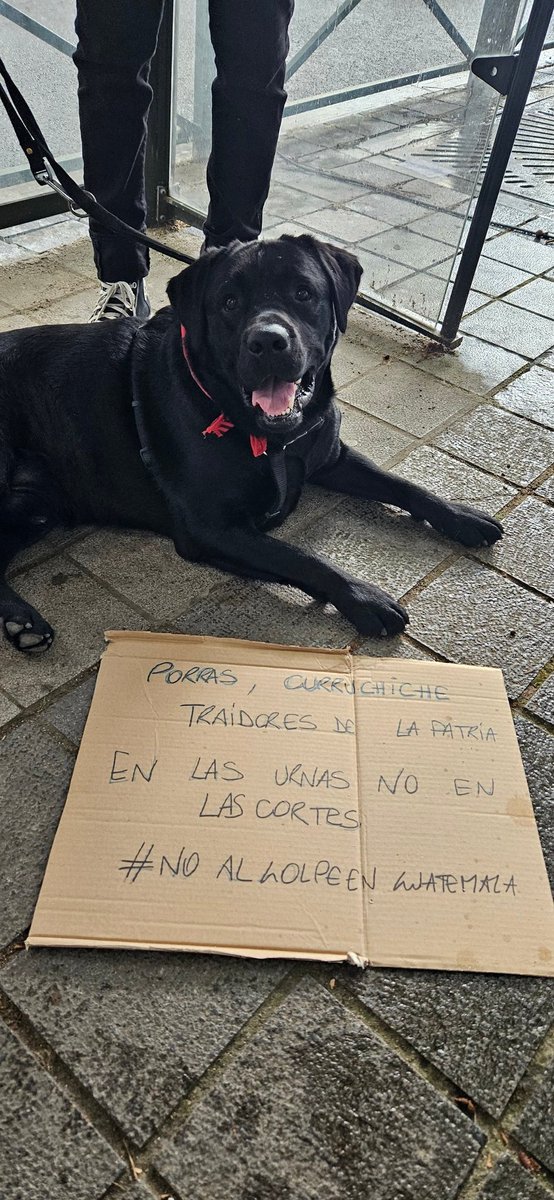 PORRAS, CURRUCHICHE
TRAIDORES DE LA PATRIA
EN LAS URNAS NO EN
LAS CORTES
#NO AL GOLPE EN GUATEMALA